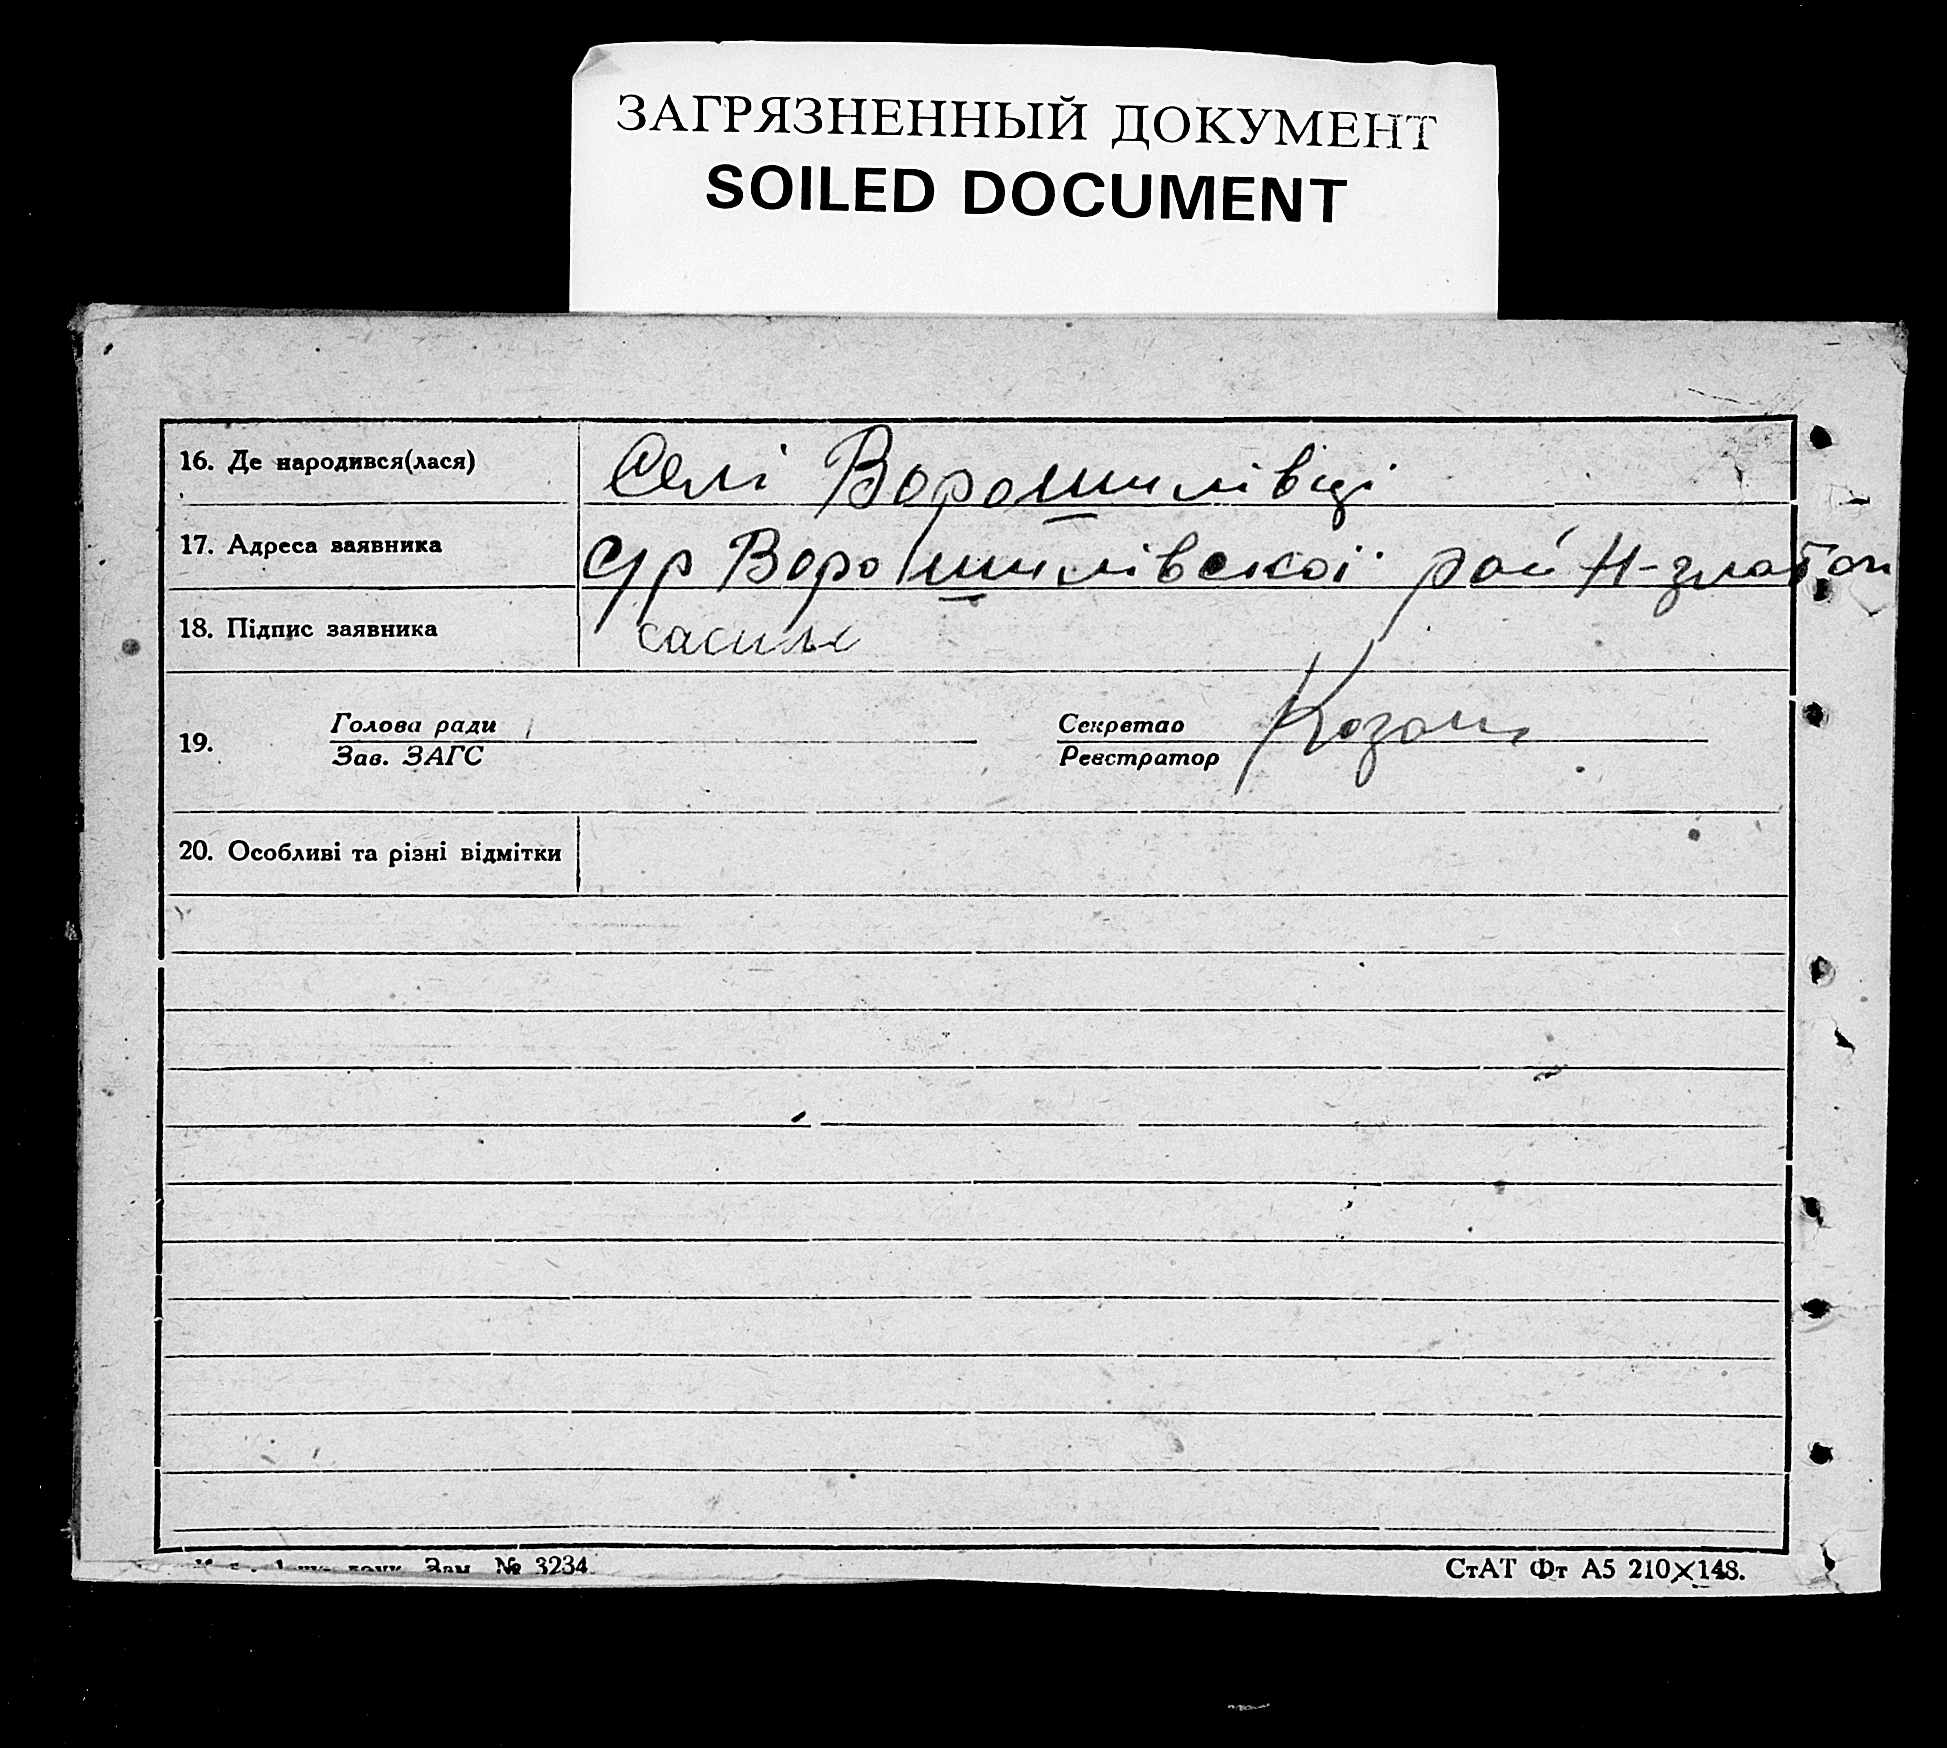 ЗАГРЯЗНЕННЫЙ ДОКУМЕНТ
SOILED DOCUMENT
16. Де народився(лася) Селі Ворошилівці
17. Адреса заявника С/р Ворошилівської рай Н-златоп
18. Підпис заявника
19. Голова ради
Зав. ЗАГС
Секретар Козак
Реєстратор
20. Особливі та різні відмітки
Зам. № 3234
СтАТ Фт А5 210×148.